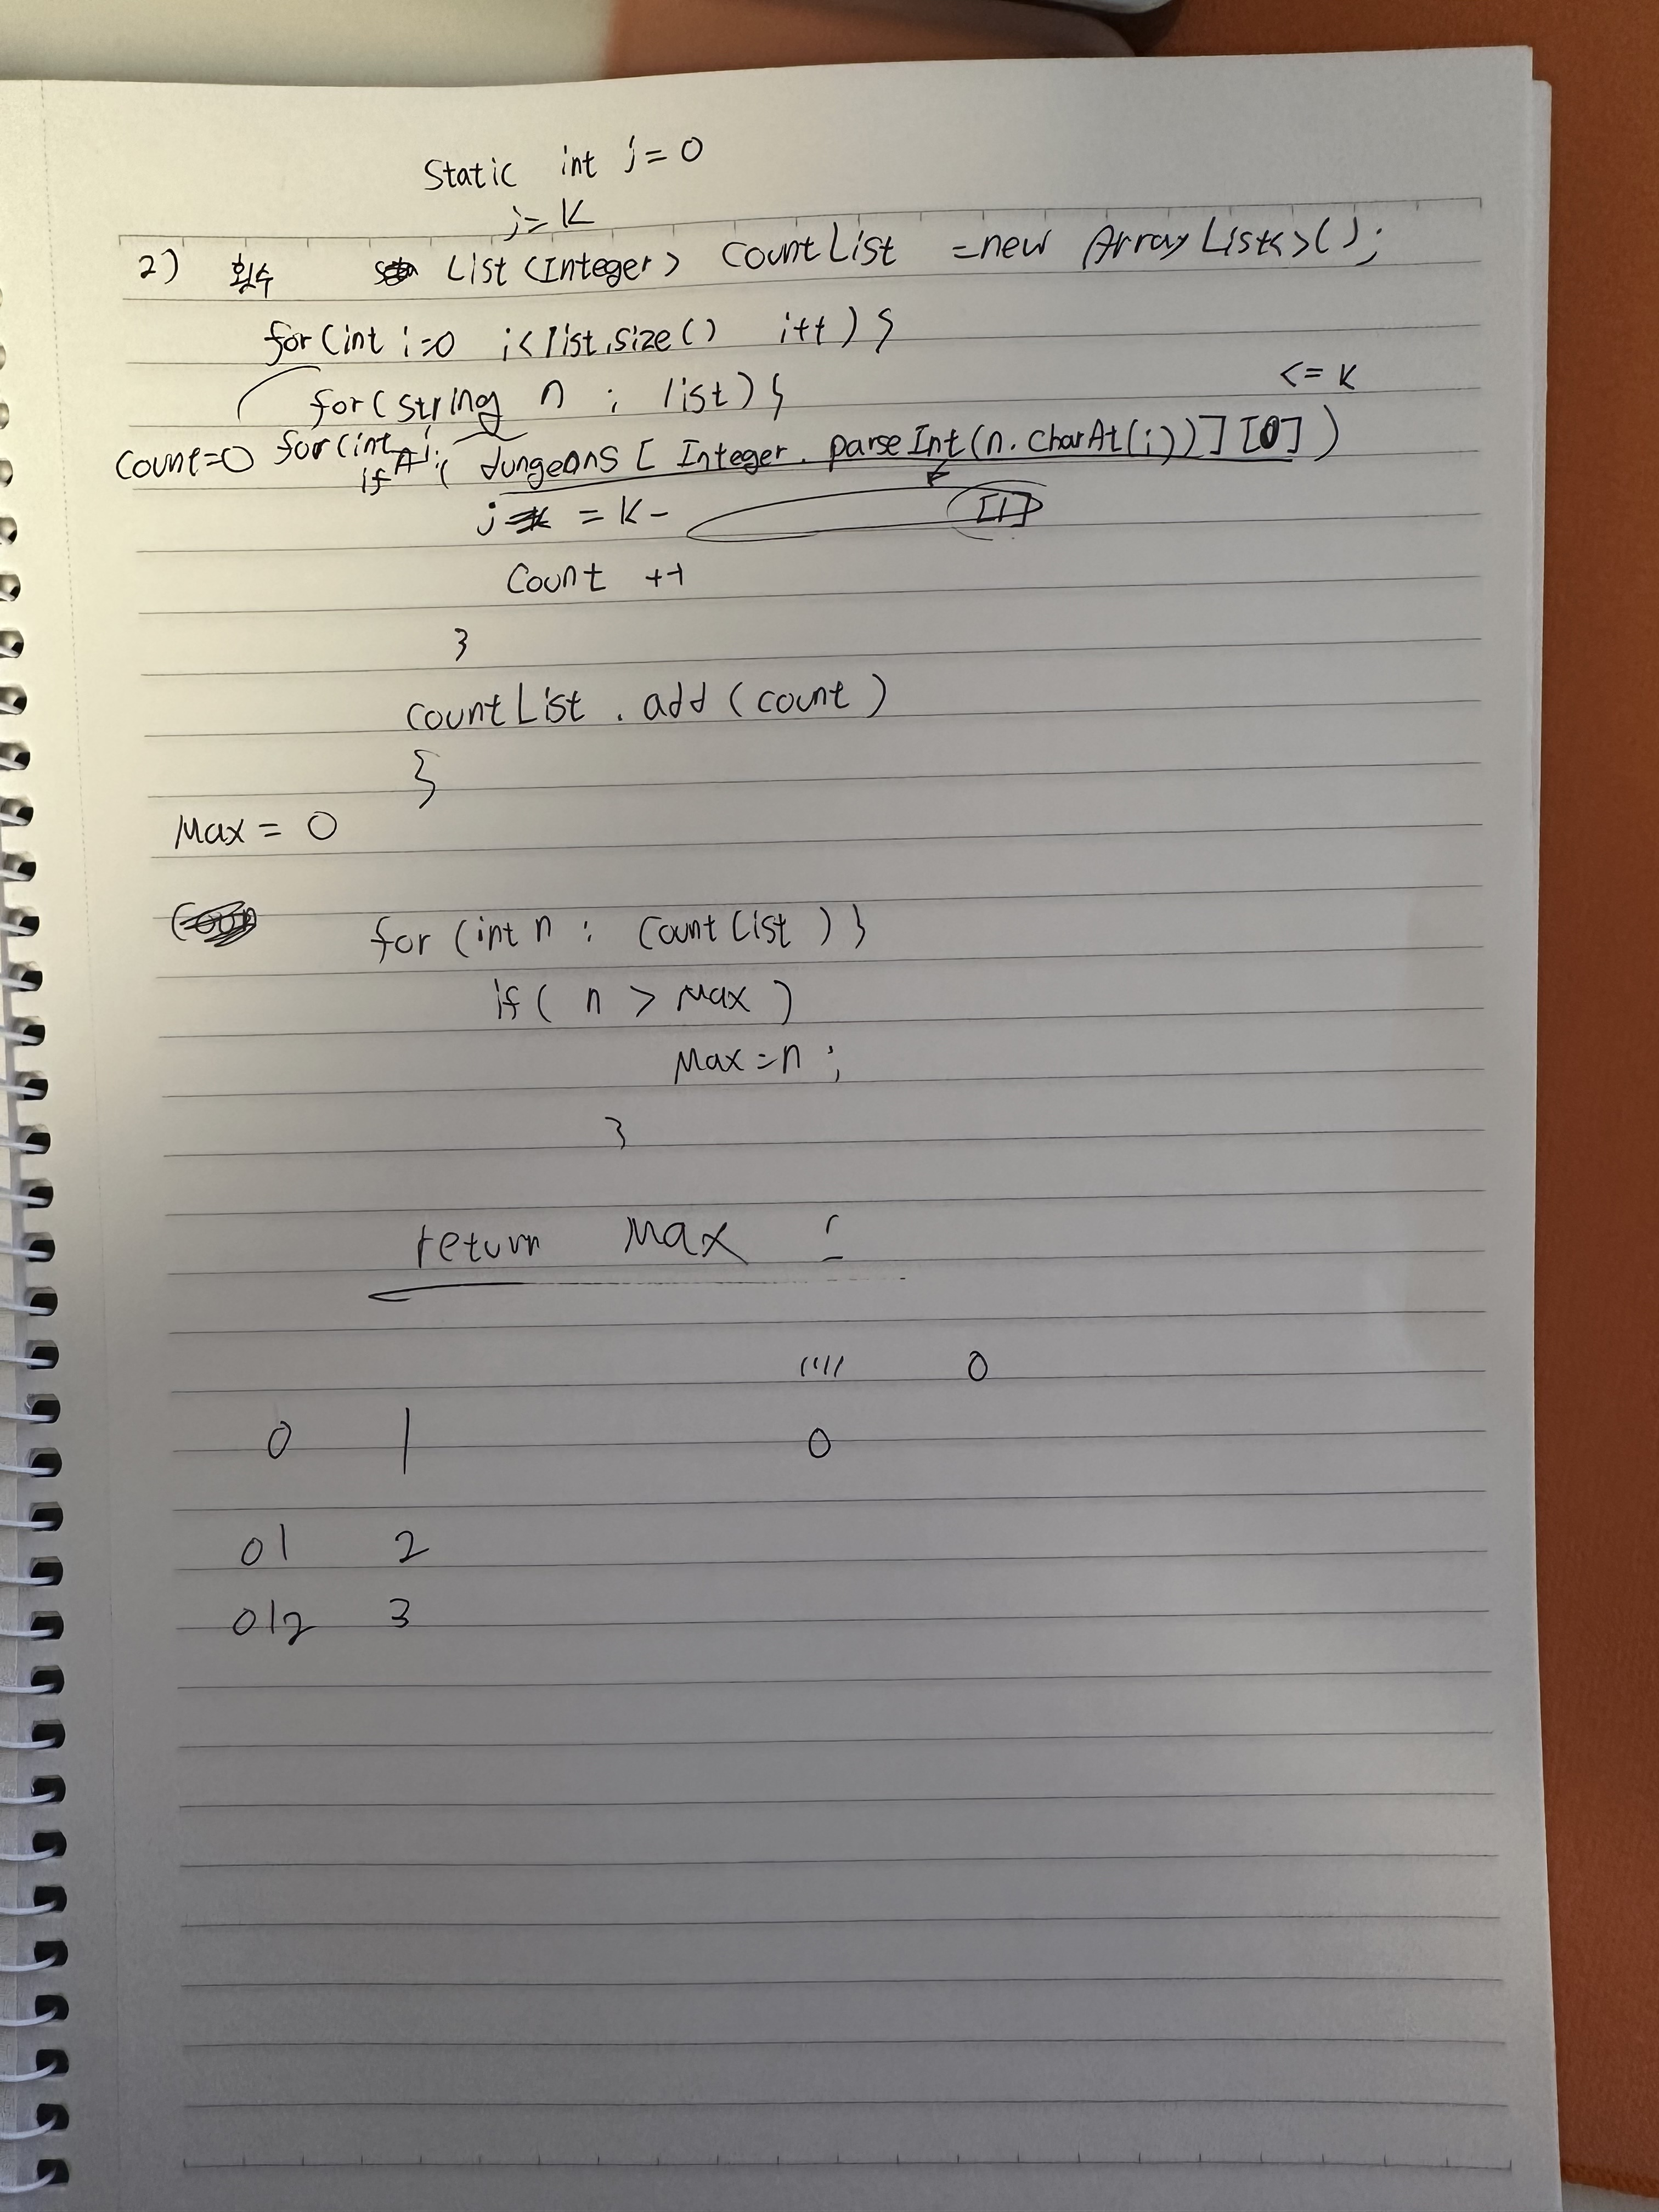 Static int j = 0
j = K
2) 횟수 List <Integer> CountList = new ArrayList<>();
for (int i=0 i < list.size() i++) {
for (string n : list) {
<= K
Count=0 for (int
if ( dungeons [ Integer. parseInt(n.charAt(i))] [0] )
j = K - [1]
Count ++
}
countList . add ( count )
}
Max = 0
for (int n : CountList ) }
if ( n > Max )
Max = n ;
}
return Max ;
0
0 1 0
01 2
012 3